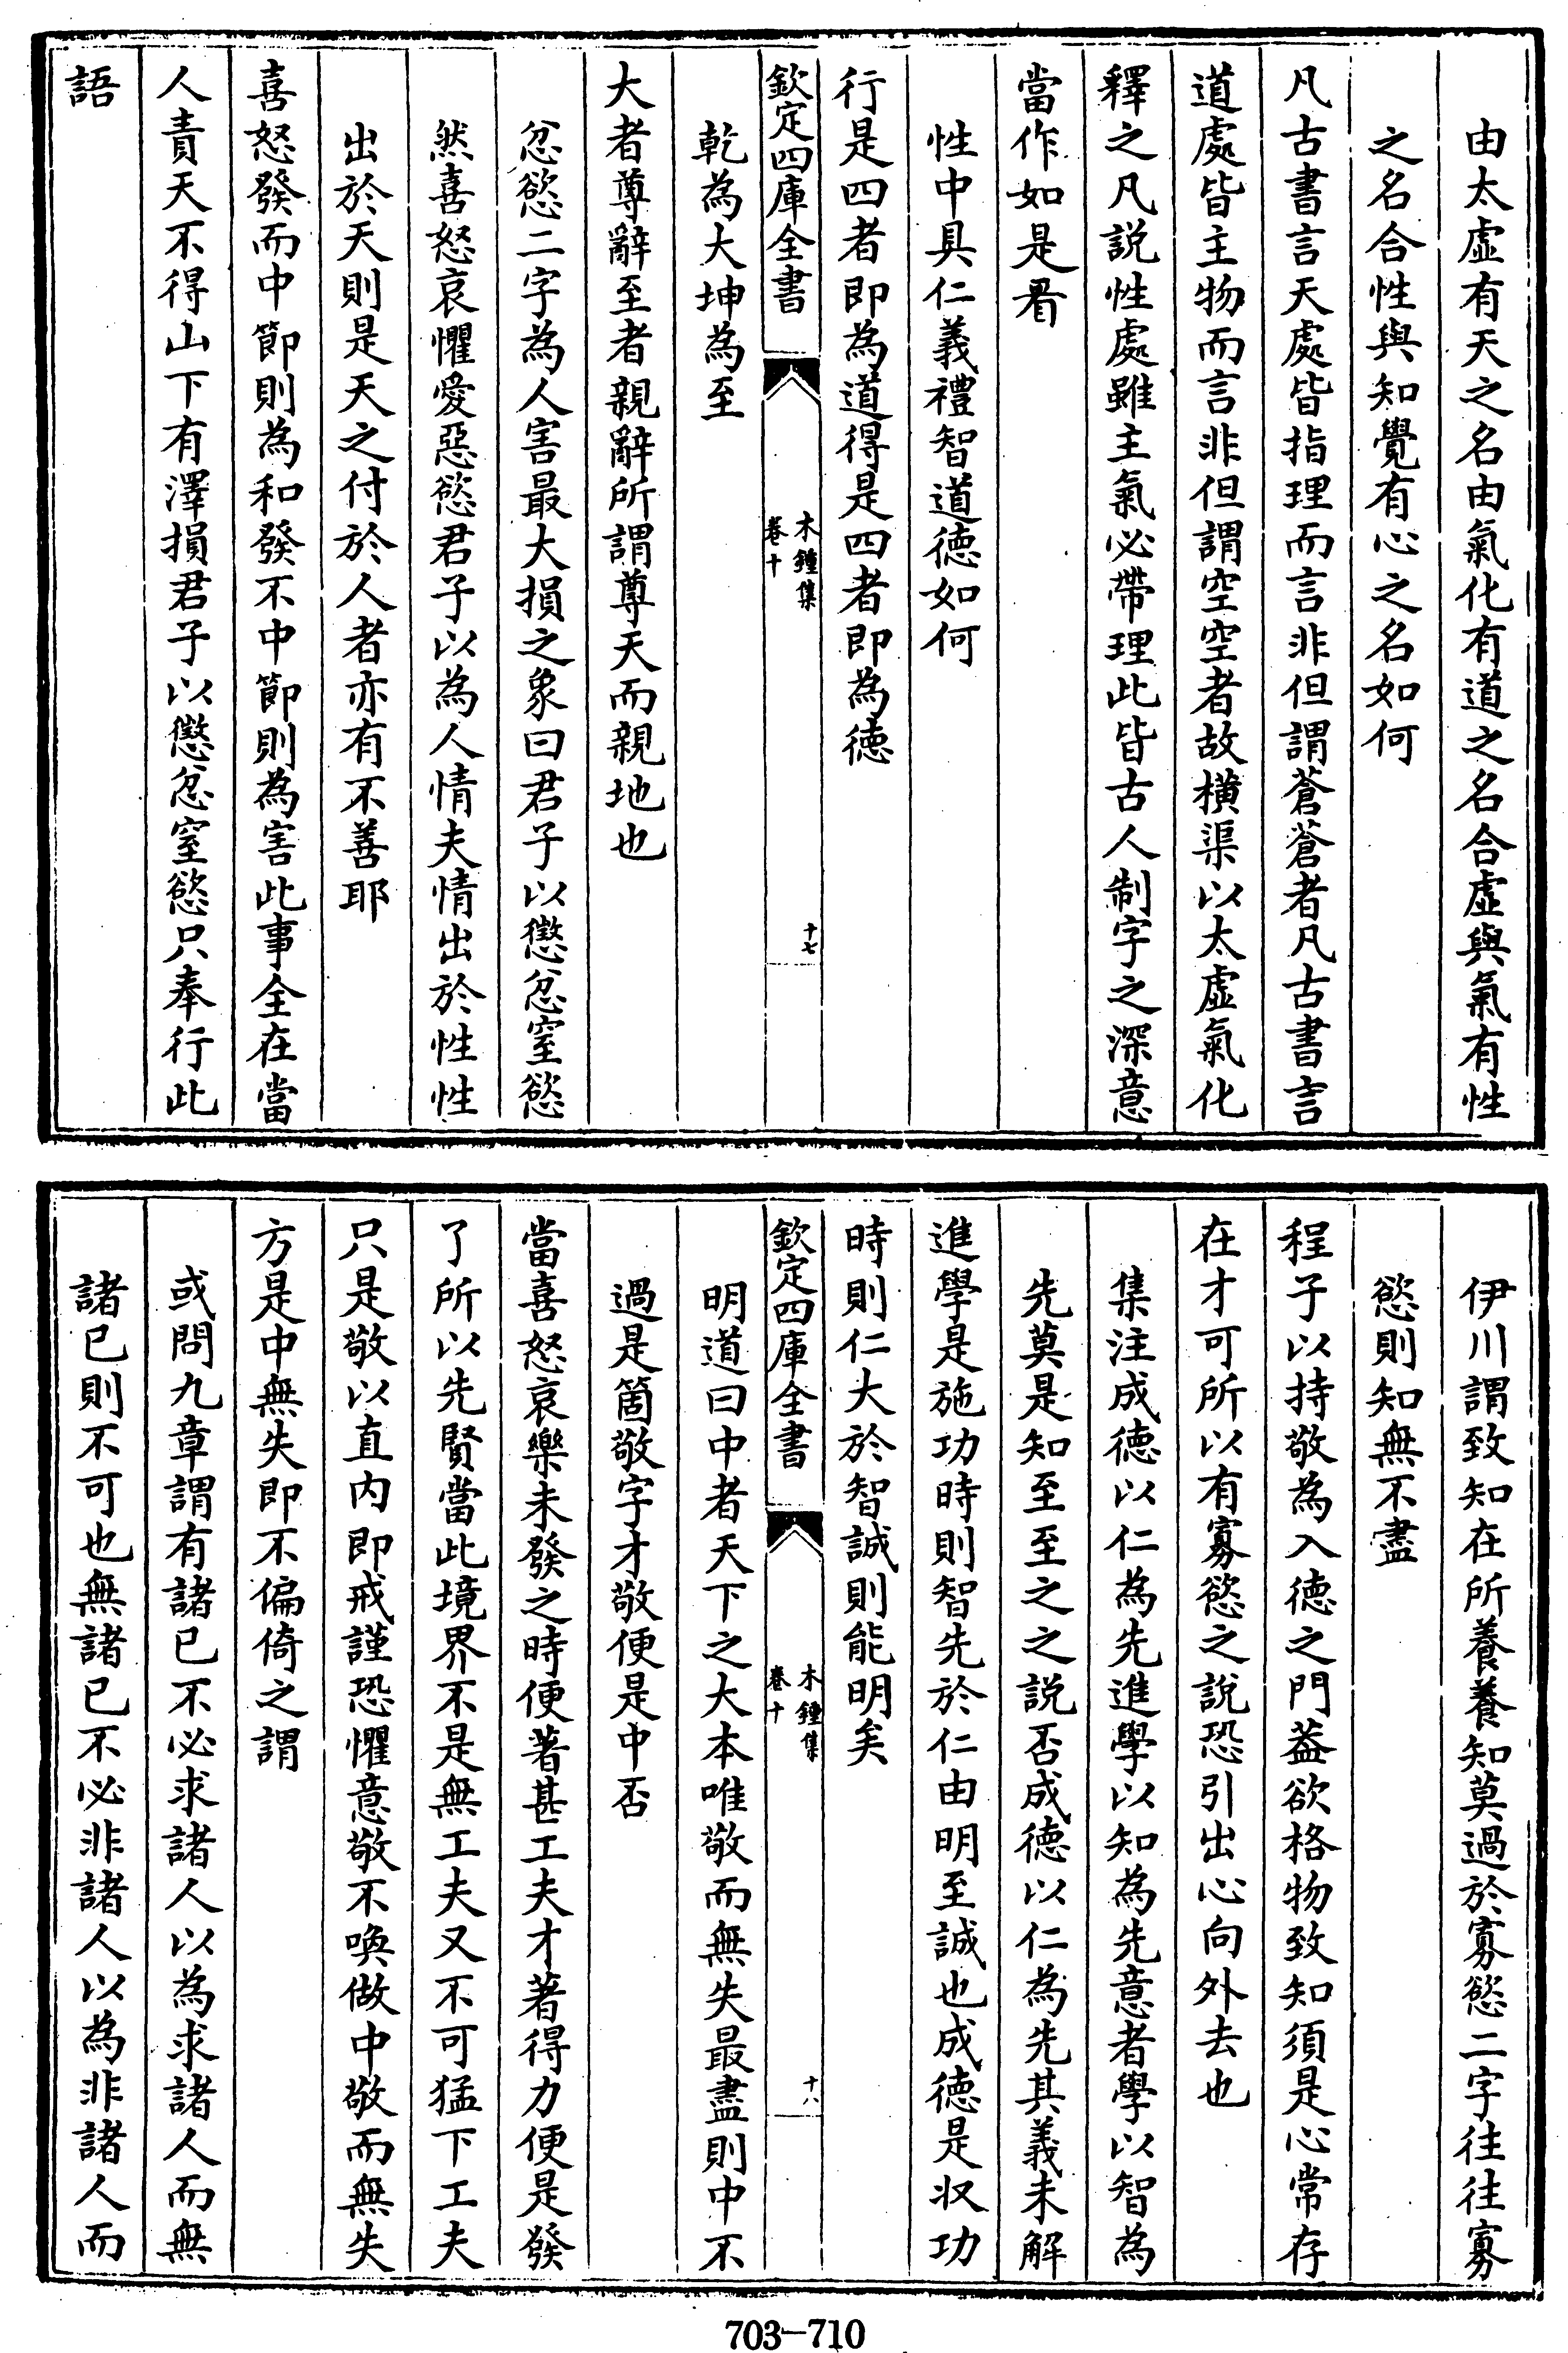 由太虛有天之名由氣化有道之名合虛與氣有性
之名合性與知覺有心之名如何
凡古書言天處皆指理而言非但謂蒼蒼者凡古書言
道處皆主物而言非但謂空空者故橫渠以太虛氣化
釋之凡説性處雖主氣必帶理此皆古人制字之深意
當作如是看
性中具仁義禮智道徳如何
行是四者即為道得是四者即為徳
欽定四庫全書
木鍾集
卷十
十七
乾為大坤為至
大者尊辭至者親辭所謂尊天而親地也
忿慾二字為人害最大損之象曰君子以懲忿窒慾
然喜怒哀懼愛惡慾君子以為人情夫情出於性性
出於天則是天之付於人者亦有不善耶
喜怒發而中節則為和發不中節則為害此事全在當
人責天不得山下有澤損君子以懲忿窒慾只奉行此
語
伊川謂致知在所養養知莫過於寡慾二字往往寡
慾則知無不盡
程子以持敬為入徳之門葢欲格物致知須是心常存
在才可所以有寡慾之說恐引出心向外去也
集注成徳以仁為先進學以知為先意者學以智為
先莫是知至至之之説否成徳以仁為先其義未解
進學是施功時則智先於仁由明至誠也成徳是収功
時則仁大於智誠則能明矣
欽定四庫全書
木鍾集
卷十
十八
明道曰中者天下之大本唯敬而無失最盡則中不
過是箇敬字才敬便是中否
當喜怒哀樂未發之時便著甚工夫才著得力便是發
了所以先賢當此境界不是無工夫又不可猛下工夫
只是敬以直内即戒謹恐懼意敬不喚做中敬而無失
方是中無失即不偏倚之謂
或問九章謂有諸已不必求諸人以為求諸人而無
諸已則不可也無諸已不必非諸人以為非諸人而
703—710